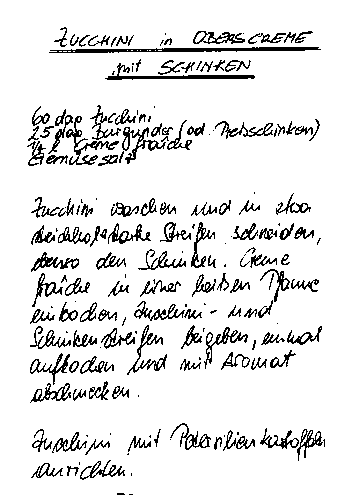 ZUCCHINI in OBERSCREME
mit SCHINKEN
60 dag Zucchini
25 dag Burgunder (od. Preßschinken)
1/4 l Creme fraîche
Gemüsesalz
Zucchini waschen und in etwa
bleistiftstarke Streifen schneiden,
ebenso den Schinken. Creme
fraîche in einer heißen Pfanne
einkochen, Zucchini- und
Schinkenstreifen beigeben, einmal
aufkochen und mit Aromat
abschmecken.
Zucchini mit Petersilienkartoffeln
anrichten.